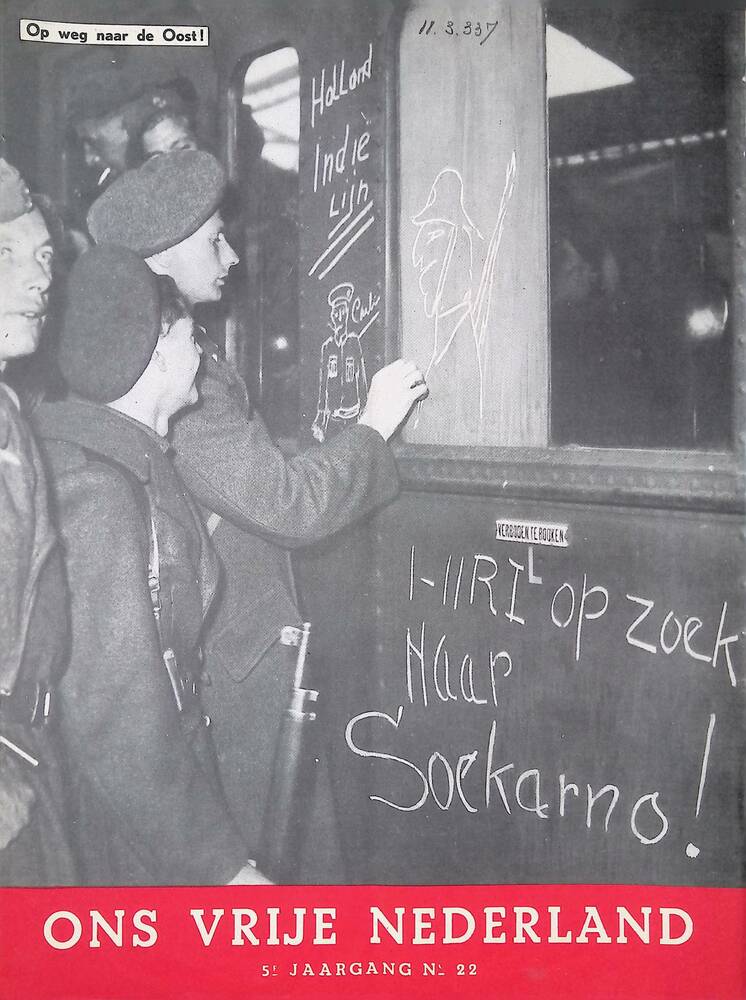 Op weg naar de Oost!
11.3.337
Holland
Indië
Lijn
VERBODEN TE ROOKEN
1-11 RI op zoek
Naar
Soekarno!
ONS VRIJE NEDERLAND
5E JAARGANG No 22